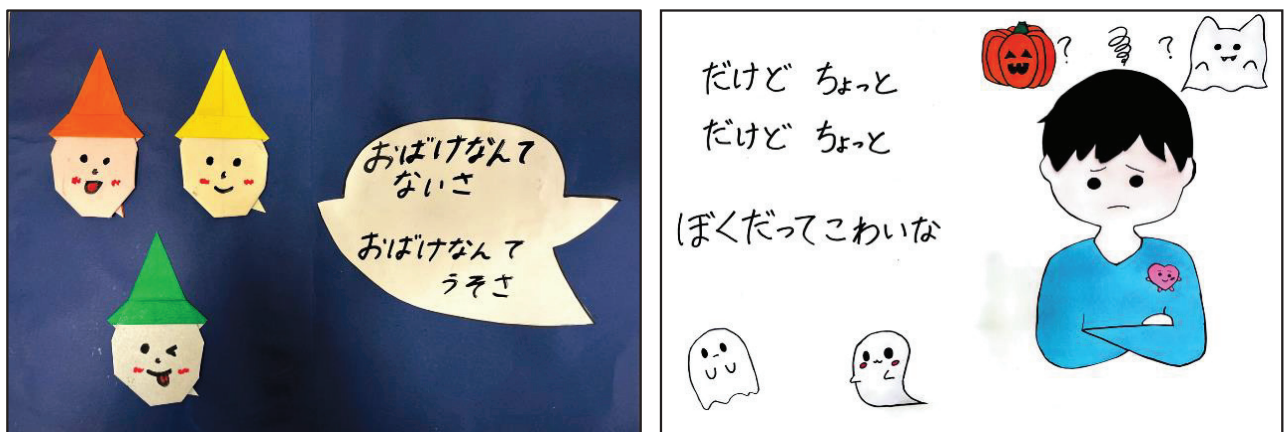 おばけなんて
ないさ
おばけなんて
うそさ
だけど ちょっと
だけど ちょっと
ぼくだってこわいな
? ?